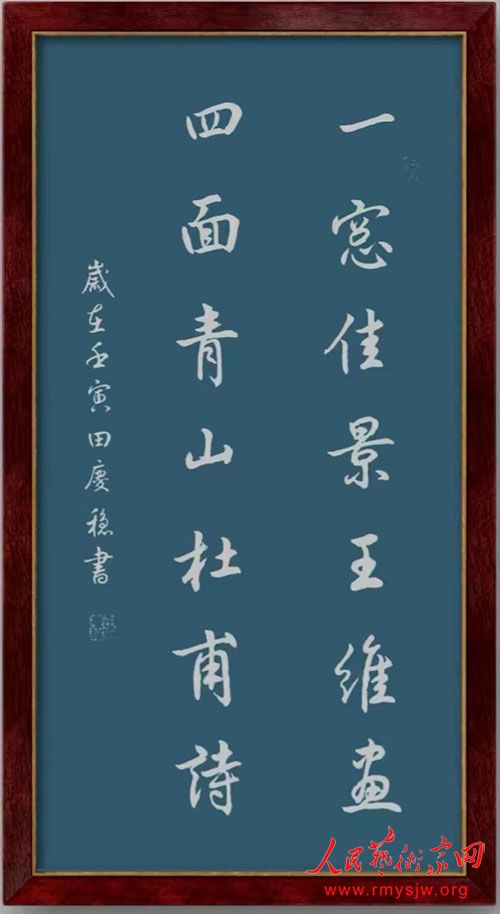 一窓佳景王維畫
四面青山杜甫詩
歲在壬寅田慶穩書
人民藝術家网
www.rmysjw.org